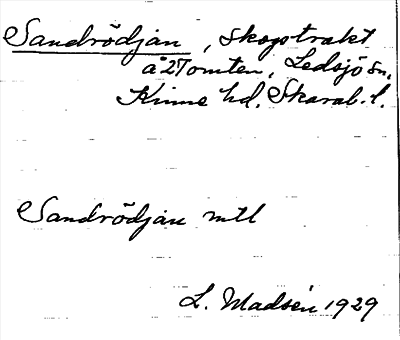 Sandrödjan, skogstrakt
å 2 Tomten, Ledsjö sn,
Kinne hd, Skarab. l.
Sandrödjan mtl
L. Madsén 1929